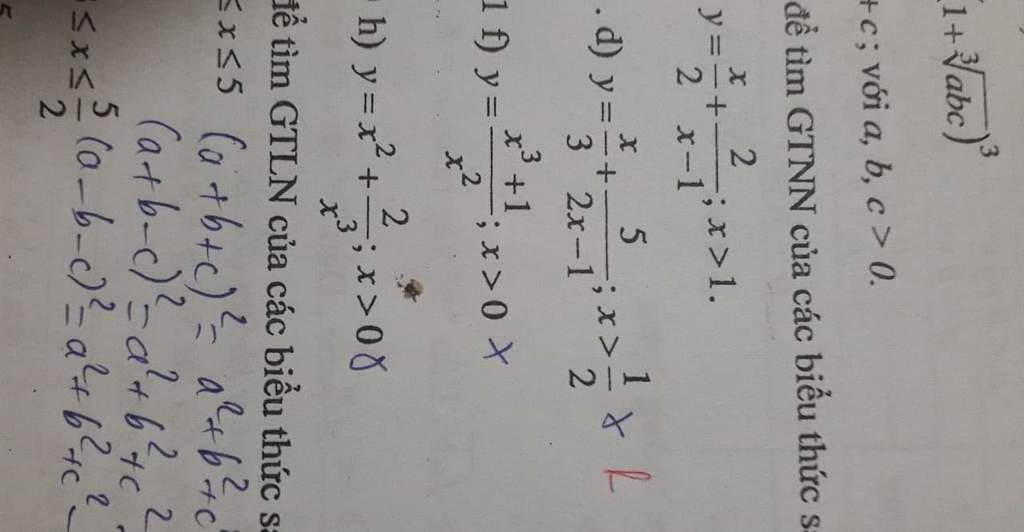 (1+∛abc)³
+ c ; với a, b, c > 0.
để tìm GTNN của các biểu thức s
y = x/2 + 2/(x−1) ; x > 1.
. d) y = x/3 + 5/(2x−1) ; x > 1/2
1 f) y = (x³+1)/x² ; x > 0
h) y = x² + 2/x³ ; x > 0
để tìm GTLN của các biểu thức s
≤ x ≤ 5 (a + b + c)² = a² + b² + c
(a + b − c)² = a² + b² + c²
≤ x ≤ 5/2 (a − b − c)² = a² + b² + c² −